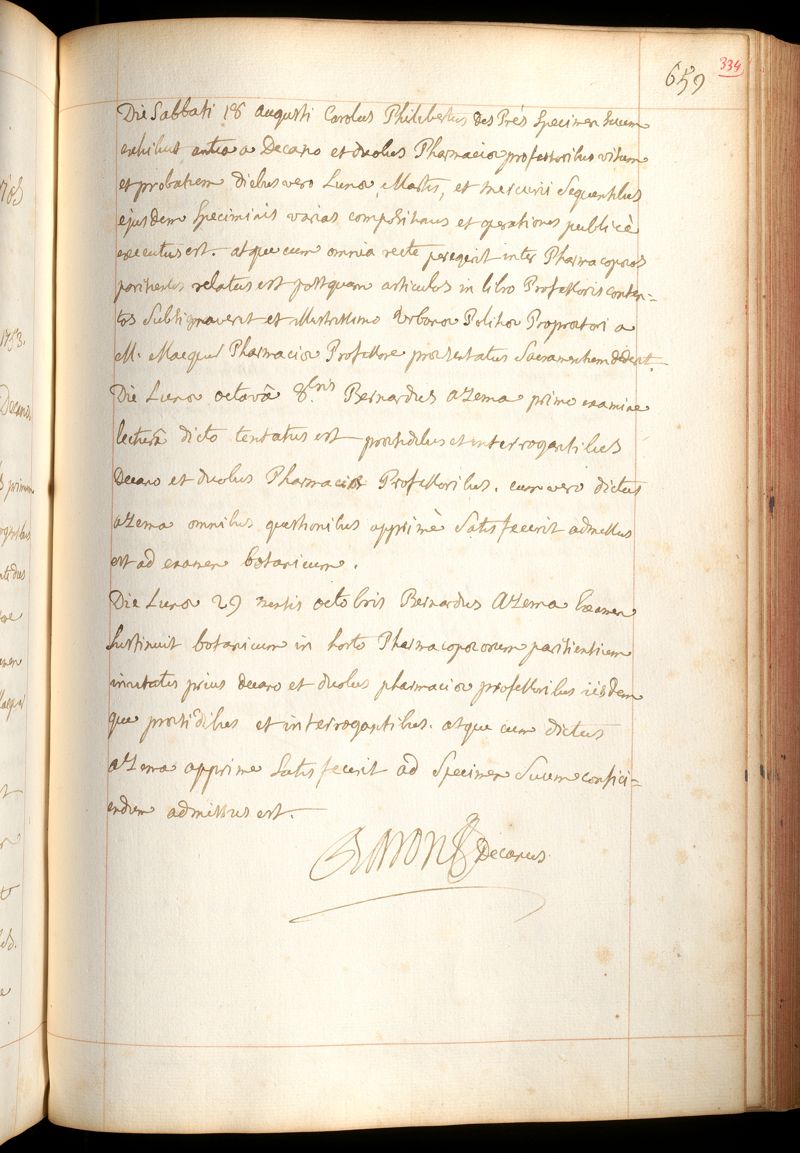 659
334
Die Sabbati 18 augusti Carolus Philibertus des Prés Specimen Suum
exhibuit antea a Decano et duobus Pharmaciæ professoribus visum
et probatum diebus vero Lunæ, Martis, et mercurii Sequentibus
ejusdem Speciminis varias compositiones et operationes publicè
executus est. atque cum omnia recte peregerit inter Pharmacopoeos
parisienses relatus est postquam articulos in libro Professoris conten=
tos Subsignaverit et illustrissimo Urbanæ Politiæ Proprætori a
M. Macquer Pharmaciæ Professore præsentatus Sacramentum dederit.
Die Lunæ octavâ 8bris Bernardus azema primo examine
lecturâ dicto tentatus est præsidibus et interrogantibus
Decano et duobus Pharmaciæ Professoribus. cum vero dictus
azema omnibus quæstionibus apprimè Satisfecerit admissus
est ad examen botanicum.
Die Lunæ 29 mensis octobris Bernardus Azema Examen
Sustinuit botanicum in horto Pharmacopoeorum parisiensium
invitatis prius decano et duobus pharmaciæ professoribus iisdem
que præsidibus et interrogantibus. atque cum dictus
azema apprime Satisfecerit ad Specimen Suum confici=
endum admissus est.
Baron Decanus
1753.
Decano